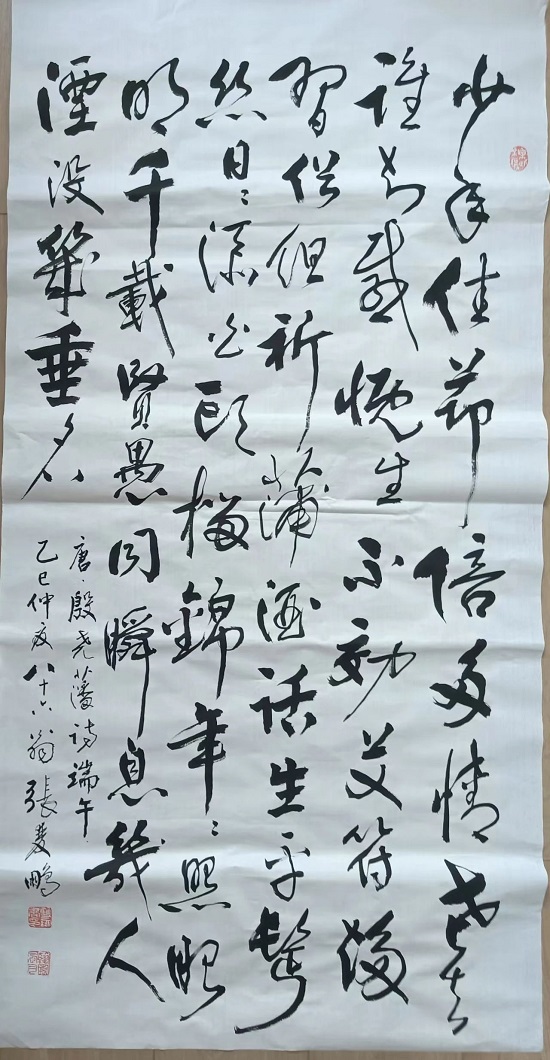 少年佳節倍多情老去
誰知感慨生不効艾符趨
習俗但祈蒲酒話生平鬢
丝日々添白頭榴錦年々照眼
明千載賢愚同瞬息幾人
湮没幾垂名
唐·殷尧藩诗端午
乙巳仲夏八十六翁張鵬